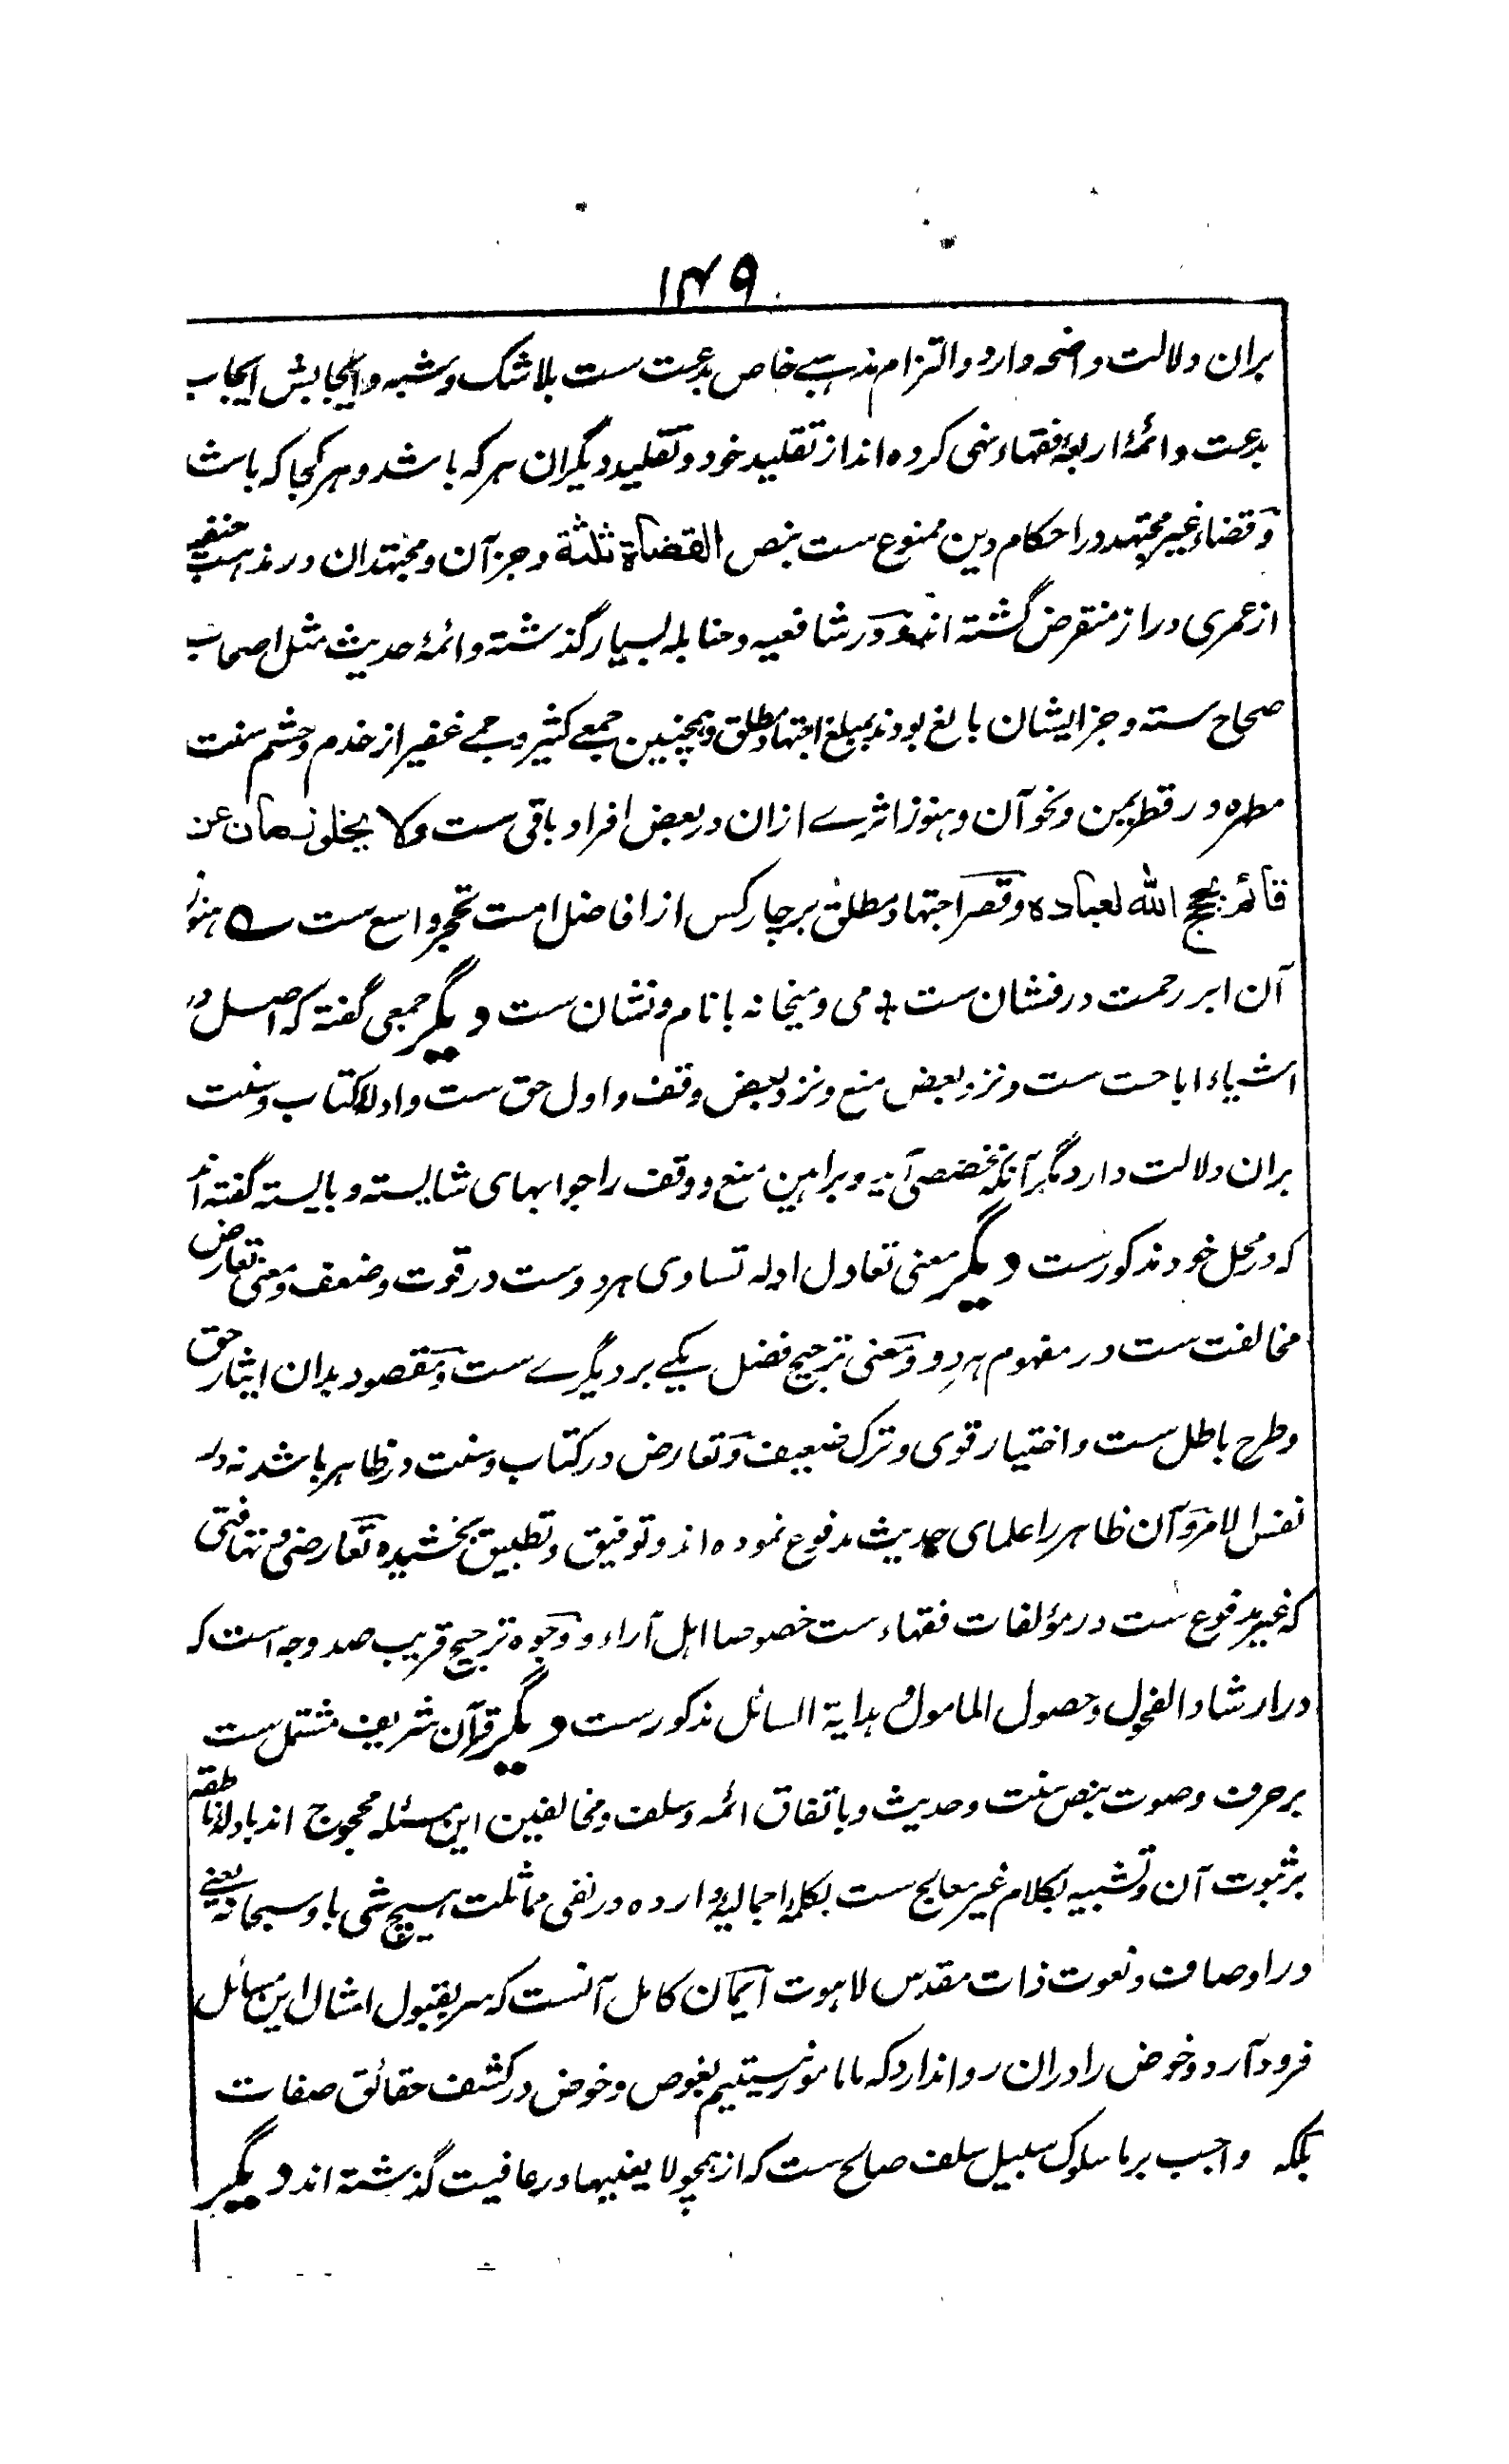 ۱۴۹
بران دلالت واضحه دارد والتزام مذهبے خاص بدعت ست بلا شک وشبه وایجابش ایجاب
بدعت وائمۂ اربعۂ فقهاء نهی کرده اند از تقلید خود وتقلید دیگران هر که باشد وهر کجا که باشد
وقضاء غیر مجتهد در احکام دین ممنوع ست بنص القضاة ثلثة وجز آن ومجتهدان در مذهب حنفیه
از عمری دراز منقرض گشته اند ودر شافعیه وحنابله بسیار گذشته وائمۂ حدیث مثل اصحاب
صحاح سته وجز ایشان بالغ بودند بمبلغ اجتهاد مطلق وهمچنین جمعے کثیر وجمے غفیر از خدم وحشم سنت
مطهره در قطر یمن ونحو آن وهنوز اثرے ازان در بعض افراد باقی ست ولا یخلو زمان عن
قائم بحجج الله لعباده وقصر اجتهاد مطلق بر چار کس از افاضل امت تحجر واسع ست ؎ هنوز
آن ابر رحمت درفشان ست + می ومیخانه با نام ونشان ست دیگر جمعی گفته که اصل در
اشیاء اباحت ست ونزد بعض منع ونزد بعض وقف واول حق ست وادلۂ کتاب وسنت
بران دلالت دارد مگر آنکه تخصصی آید وبراهین منع ووقف را جوابهای شایسته وبایسته گفته اند
که در محل خود مذکورست دیگر معنی تعادل ادله تساوی هر دوست در قوت وضعف ومعنی تعارض
مخالفت ست در مفهوم هر دو ومعنی ترجیح فضل یکے بر دیگرے ست ومقصود بدان ایثار حق
وطرح باطل ست واختیار قوی وترک ضعیف وتعارض در کتاب وسنت در ظاهر باشد نه در
نفس الامر وآن ظاهر را علمای حدیث مدفوع نموده اند وتوفیق وتطبیق بخشیده تعارضی وتهافتی
که غیر مدفوع ست در مؤلفات فقهاء ست خصوصا اهل آراء ووجوه ترجیح قریب صد وجه است که
در ارشاد الفحول وحصول المامول وهدایة السائل مذکورست دیگر قرآن شریف مشتمل ست
بر حرف وصوت بنص سنت وحدیث وباتفاق ائمه وسلف ومخالفین این مسئله محجوج اند بادلۂ ناطقه
بر ثبوت آن وتشبیه بکلام غیر معالج ست بکلمۂ اجمالیۂ وارده در نفی مماثلت هیچ شی با وسبحانه یعنے
در اوصاف ونعوت ذات مقدس لاهوت ایمان کامل آنست که سر بقبول امثال این مسائل
فرود آرد وخوض را دران روا ندارد که ما مامور نیستیم بغوص وخوض در کشف حقائق صفات
بلکه واجب بر ما سلوک سبیل سلف صالح ست که از همچو لا یعنیها در عافیت گذشته اند دیگر